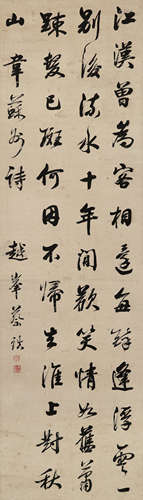 江漢曾為客相逢每醉還浮雲一
別後流水十年間歡笑情如舊蕭
踈鬢已斑何因不歸去淮上對秋
山 韋蘇州詩 峯蔡